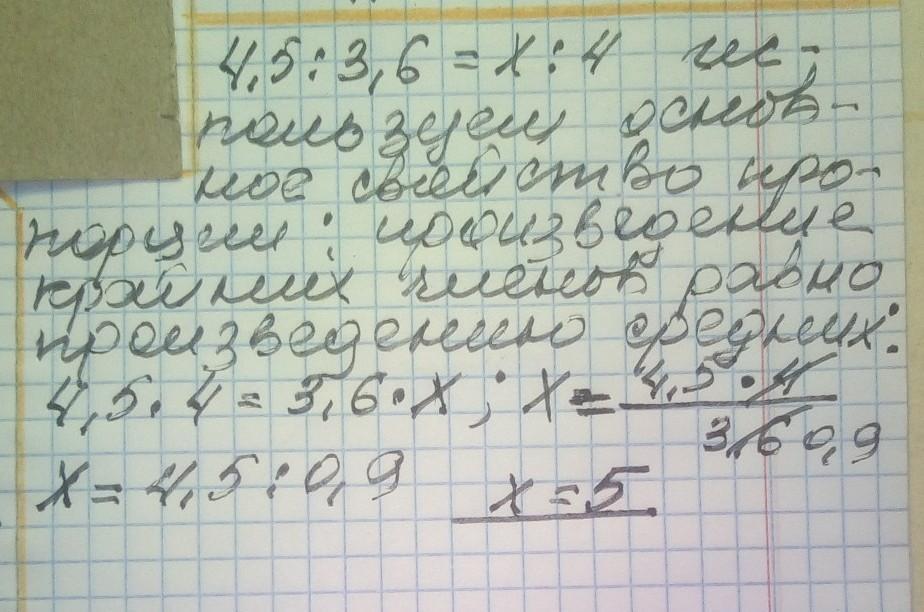 4,5:3,6 = x:4 ис-
пользуем основ-
ное свойство про-
порции: произведение
крайних членов равно
произведению средних:
4,5·4 = 3,6·x; x = 4,5·4 / 3,6 0,9
x = 4,5:0,9 x = 5